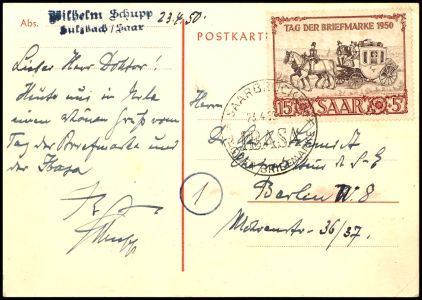 Abs.
Wilhelm Schupp
Sulzbach/Saar
23.4.50.
POSTKARTE
TAG DER BRIEFMARKE 1950
15 SAAR 5
SAARBRÜCKEN
23.4.
IBASA
Lieber Herr Doktor!
Heute nur in Eile
einen schönen Gruß vom
Tag der Briefmarke und
der Ibasa
Schupp
Herrn
Dr.
Berlin W. 8
Mohrenstr. 36/37.
1